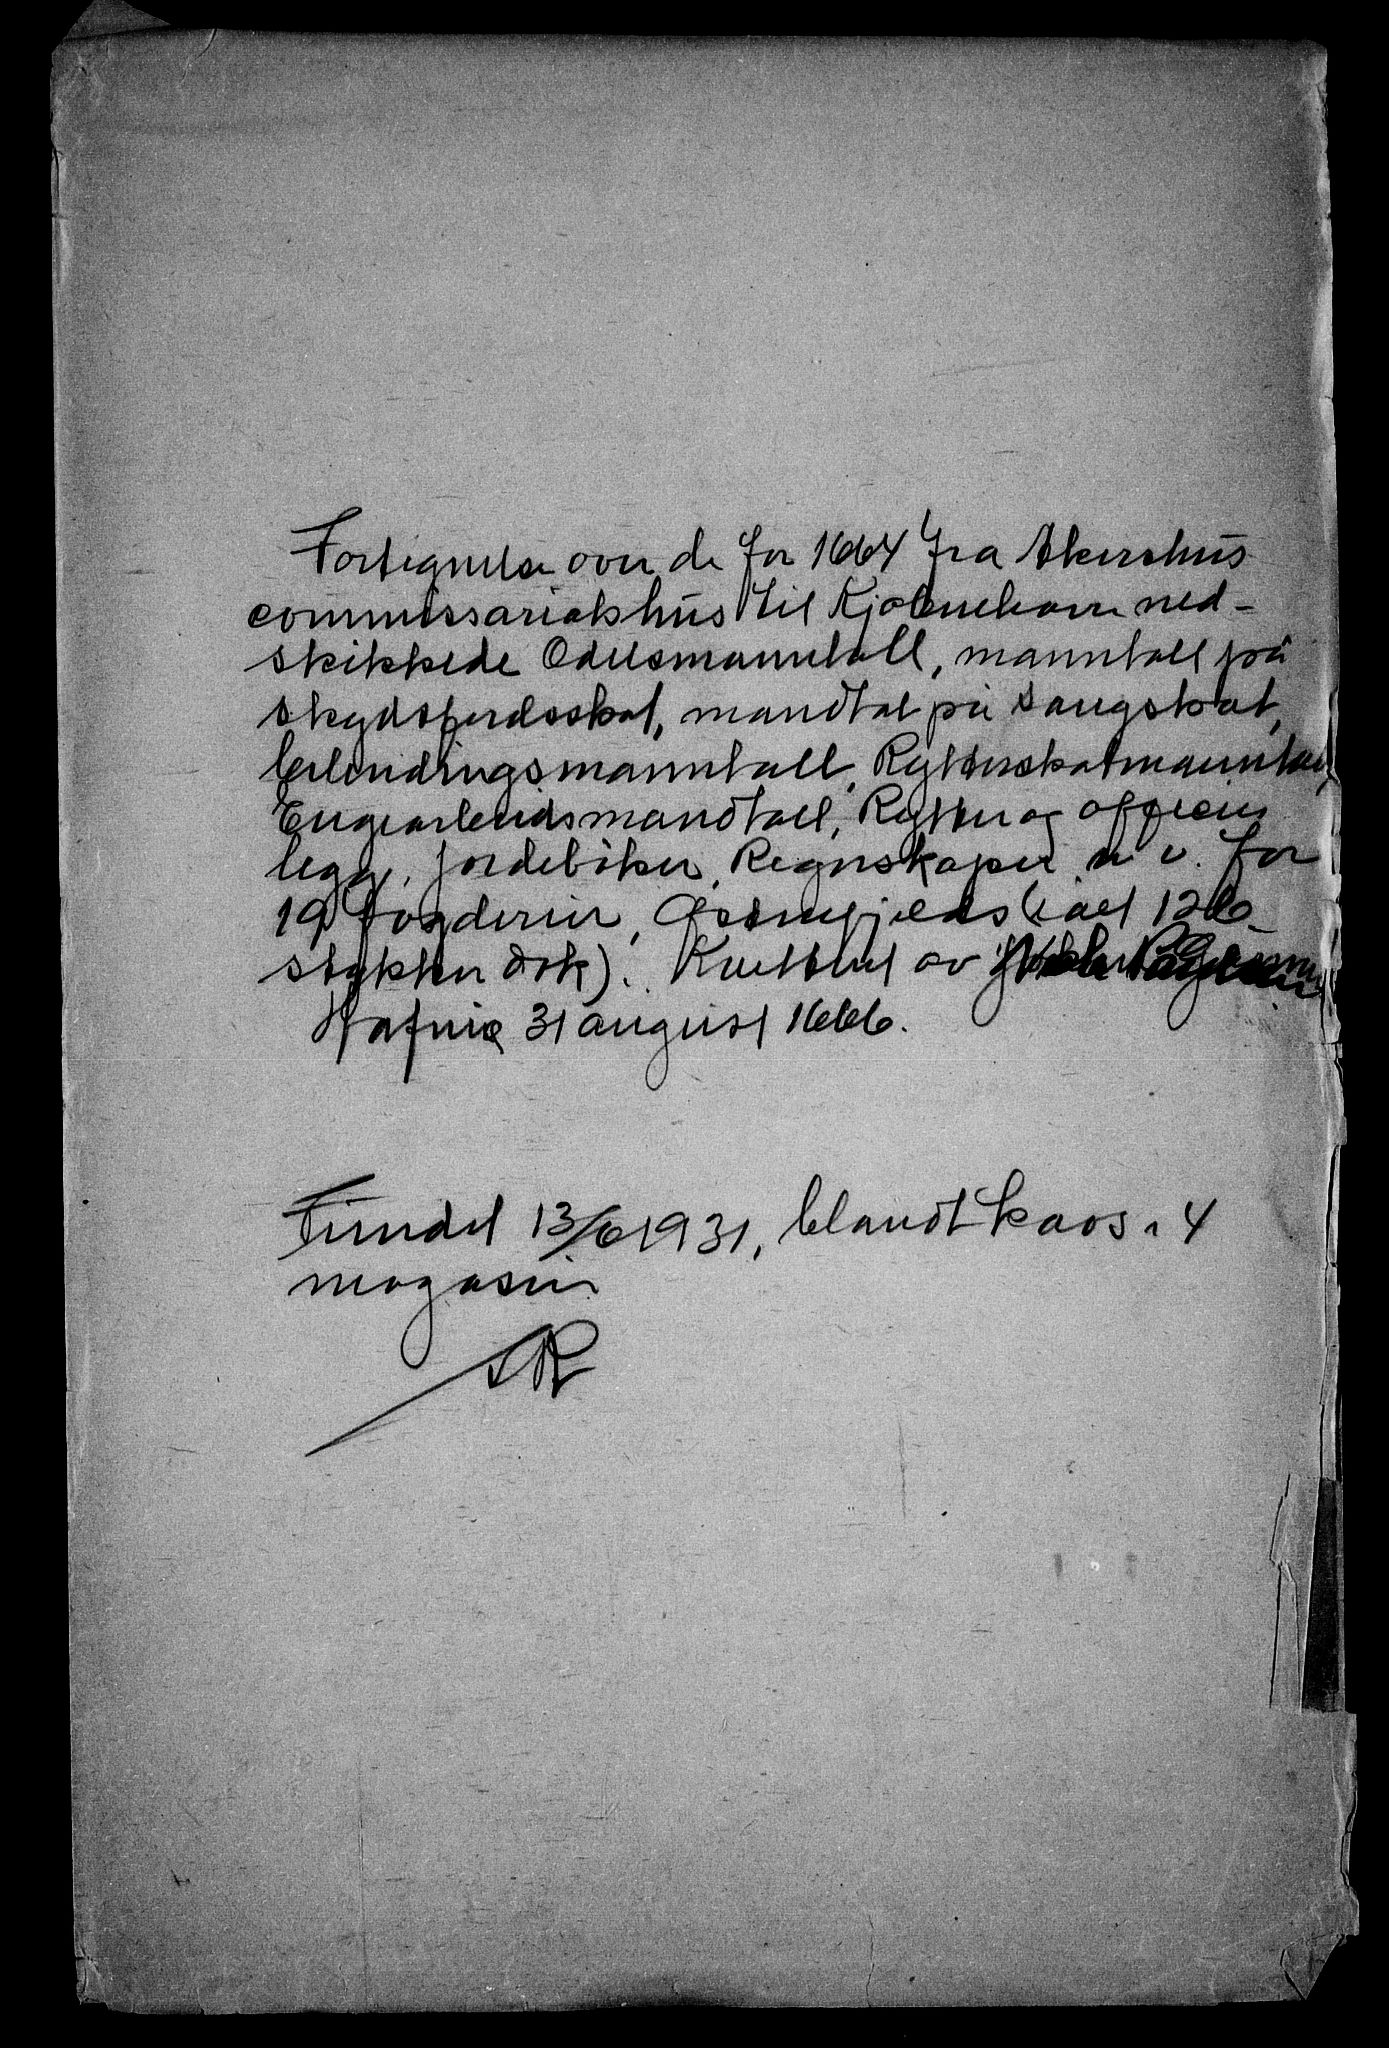 Fortegnelse over de for 1664 fra Akershus
commissariatshus til Kjøbenehavn ned-
skikkede Odelsmanntall, manntall på
skydsferdsskat, mandtal på saugskat,
Utrednings manntall, Rytterskatmanntall,
Engearbeidsmandtall, Rytter og officers
legg, jordebøker, Regnskaper m v. for
19 fogderier, Østenfjelds (ialt 126
stykker dok). Kvittert av
Hafnie 31 august 1666.
Fundet 13/6 1931, blandt kaos i 4
magasin
SR